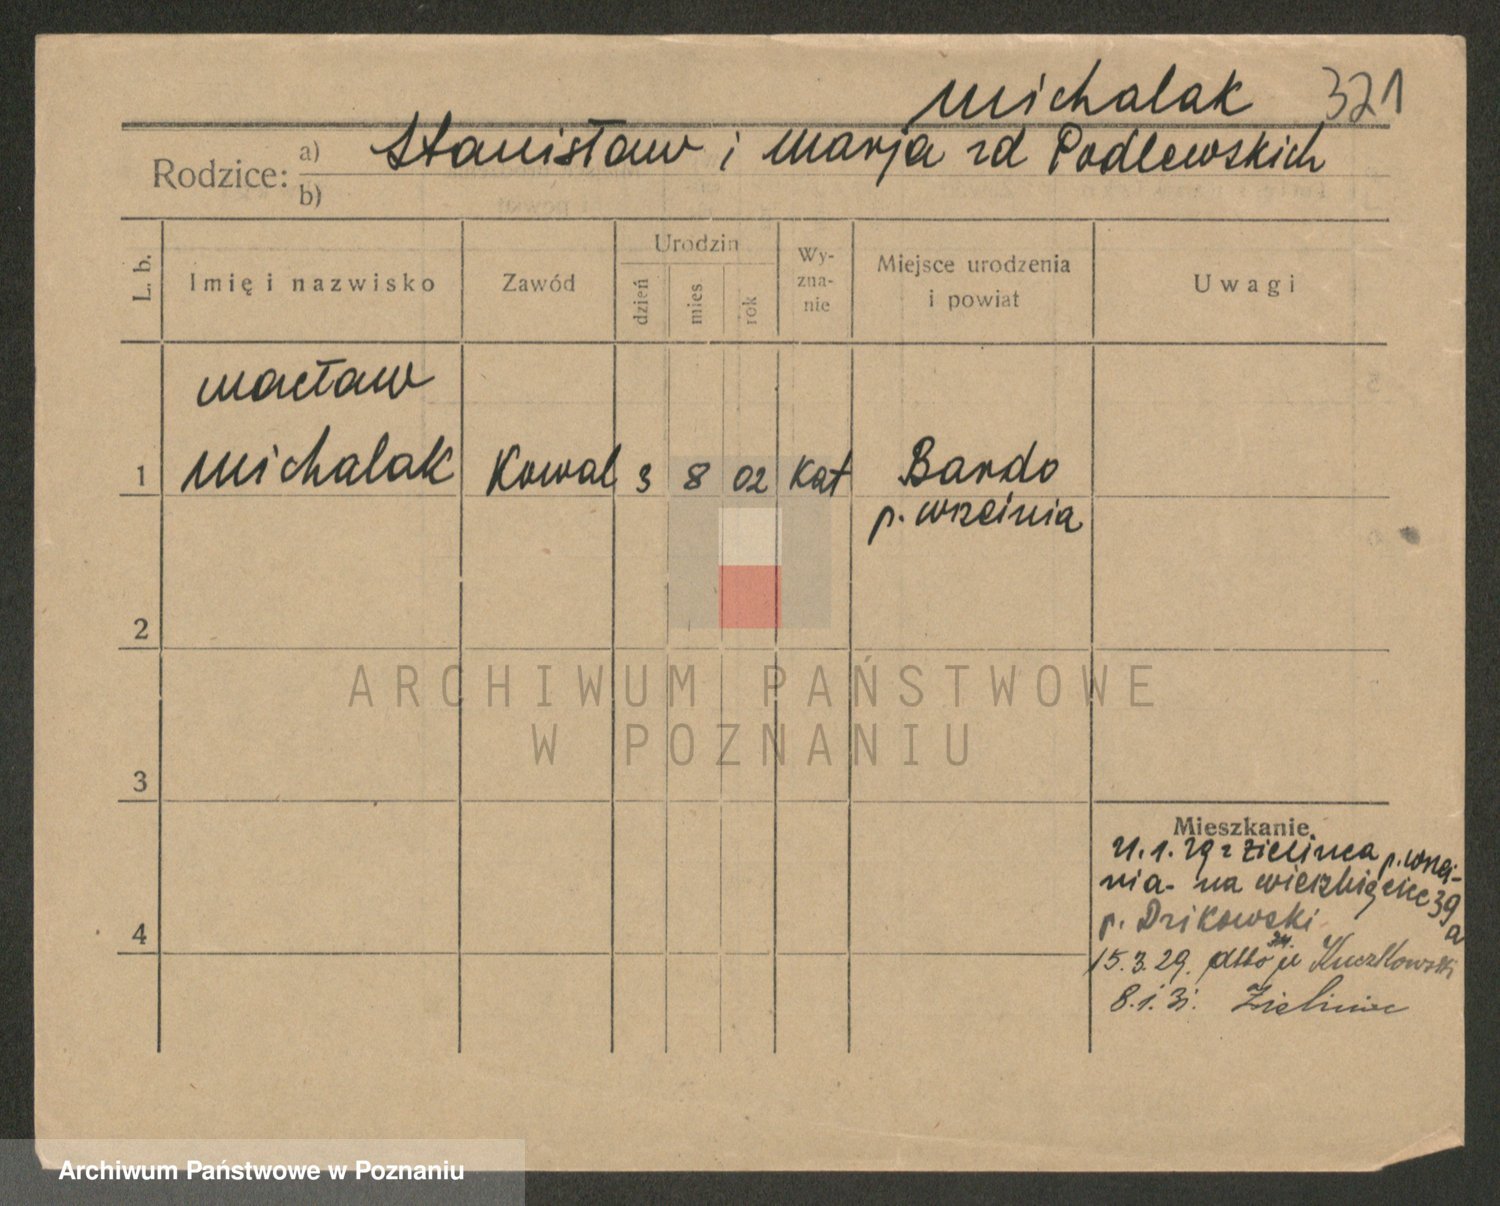 Michalak 321
Rodzice: a) Stanisław i Marja zd Podlewskich
b)
L. b.
Imię i nazwisko
Zawód
Urodzin
dzień
mies
rok
Wy-
zna-
nie
Miejsce urodzenia
i powiat
Uwagi
Wacław
1 Michalak Kowal 3 8 02 Kat Bardo
p. Września
2
ARCHIWUM PAŃSTWOWE
W POZNANIU
3
4
Mieszkanie
21.1.29 z Zielińca p. Wrześ-
nia- na Wierzbięcice 39
a
p. Dzikowski
15.3.29. Kuczkowski
8.1.31. Zieliniec
Archiwum Państwowe w Poznaniu